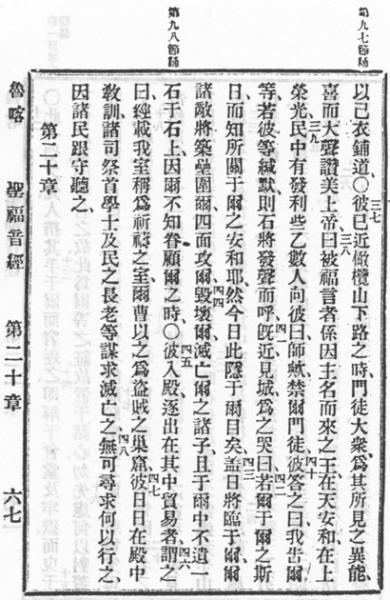 第九七節誦
第九八節誦
三七
以己衣鋪道〇彼已近橄欖山下路之時門徒大衆爲其所見之異能
三八
喜而大聲讚美上帝曰被福言者係因主名而來之王在天安和在上
三九 四十
榮光民中有發利些乙數人向彼曰師歟禁爾門徒彼答之曰我吿爾
四一 四二
等若彼等緘默則石將發聲而呼旣近見城爲之哭曰若爾于爾之斯
四三
日而知所關于爾之安和耶然今日此隱于爾目矣蓋日將臨于爾爾
四四
諸敵將築壘圍爾四面攻爾毀壞爾滅亡爾之諸子且于爾中不遺
四五 四六
石于石上因爾不知眷顧爾之時〇彼入殿逐出在其中貿易者謂之
四七
曰經載我室稱爲祈禱之室爾曹以之爲盜賊之巢窟彼日日在殿中
四八
敎訓諸司祭首學士及民之長老等謀求滅亡之無可尋求何以行之
因諸民跟守聽之
第二十章
魯喀 聖福音經 第二十章 六七